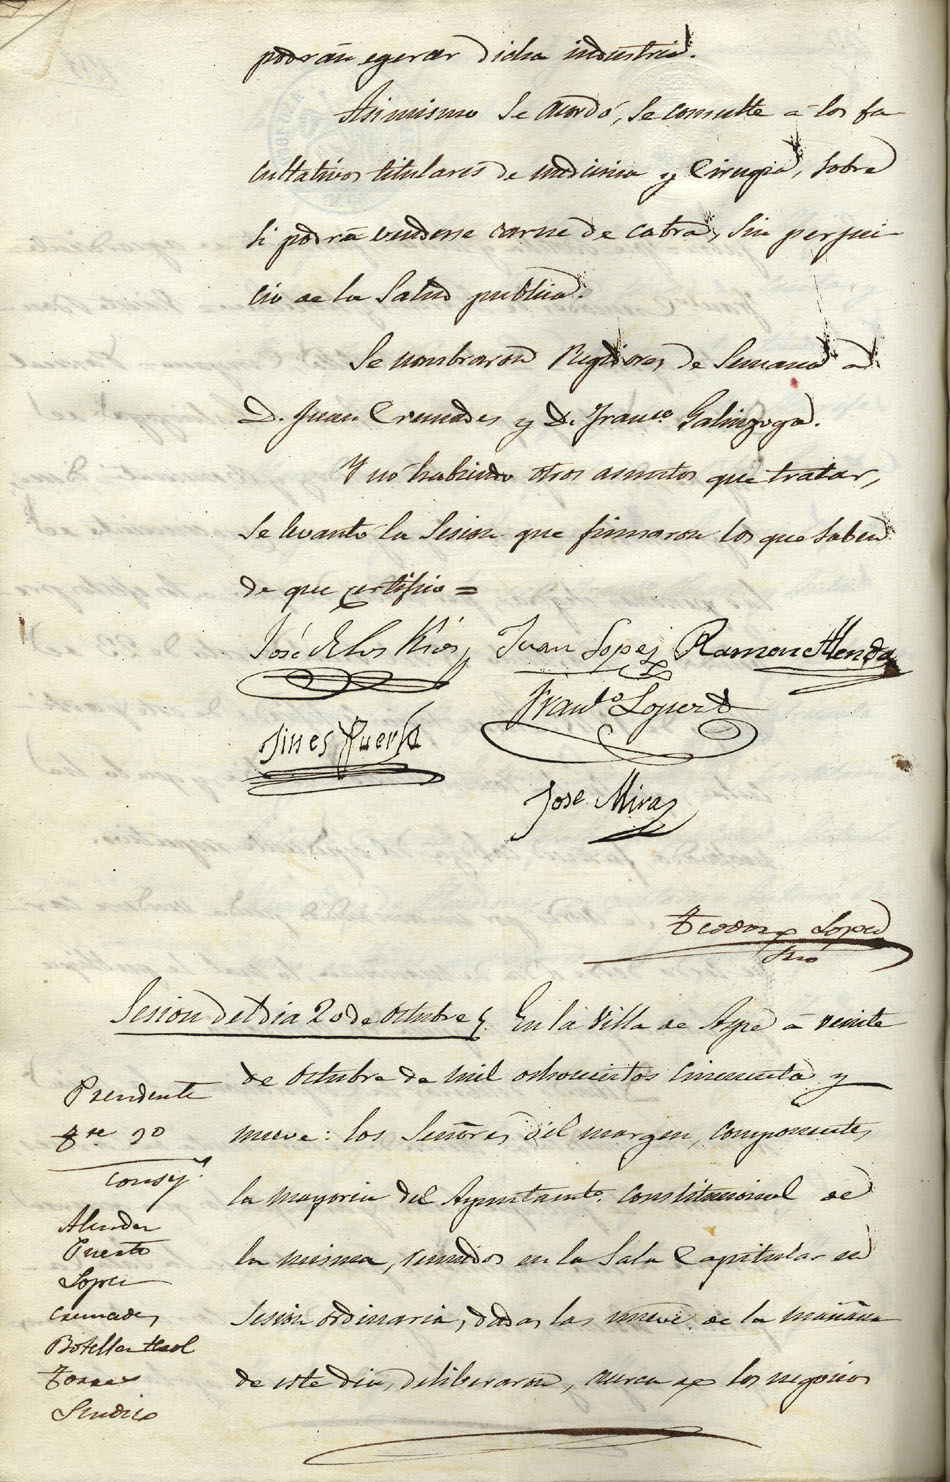 podrán egercer dicha industria.
Asimismo se acordó, se consulte á los fa
cultativos titulares de medicina y Cirugia, sobre
si podrá venderse carne de cabra, sin perjui-
cio de la Salud publica.
Se nombraron Regidores de Semana á
D. Juan Cremades y D. Franco. Galinzoga.
Y no habiendo otros asuntos que tratar,
se levantó la Sesion que firmaron los que saben
de que certifico =
José de los Rios Juan Lopez Ramon Alenda
Franco Lopez
Jines Puerto
Jose Miras
Teodoro Lopez
Srio
Sesion del dia 20 de Octubre En la Villa de Aspe á veinte
de Octubre de mil ochocientos cincuenta y
nueve: los Señores del margen, componentes
la mayoria del Ayuntamto. constitucional de
la misma, reunidos en la Sala Capitular en
sesion ordinaria, dadas las nueve de la mañana
de este dia, deliberaron, acerca de los negocios
Presidente
Tte 1º
Consejs.
Alenda
Puerto
Lopez
Cremades
Botella
Torres
Sindico